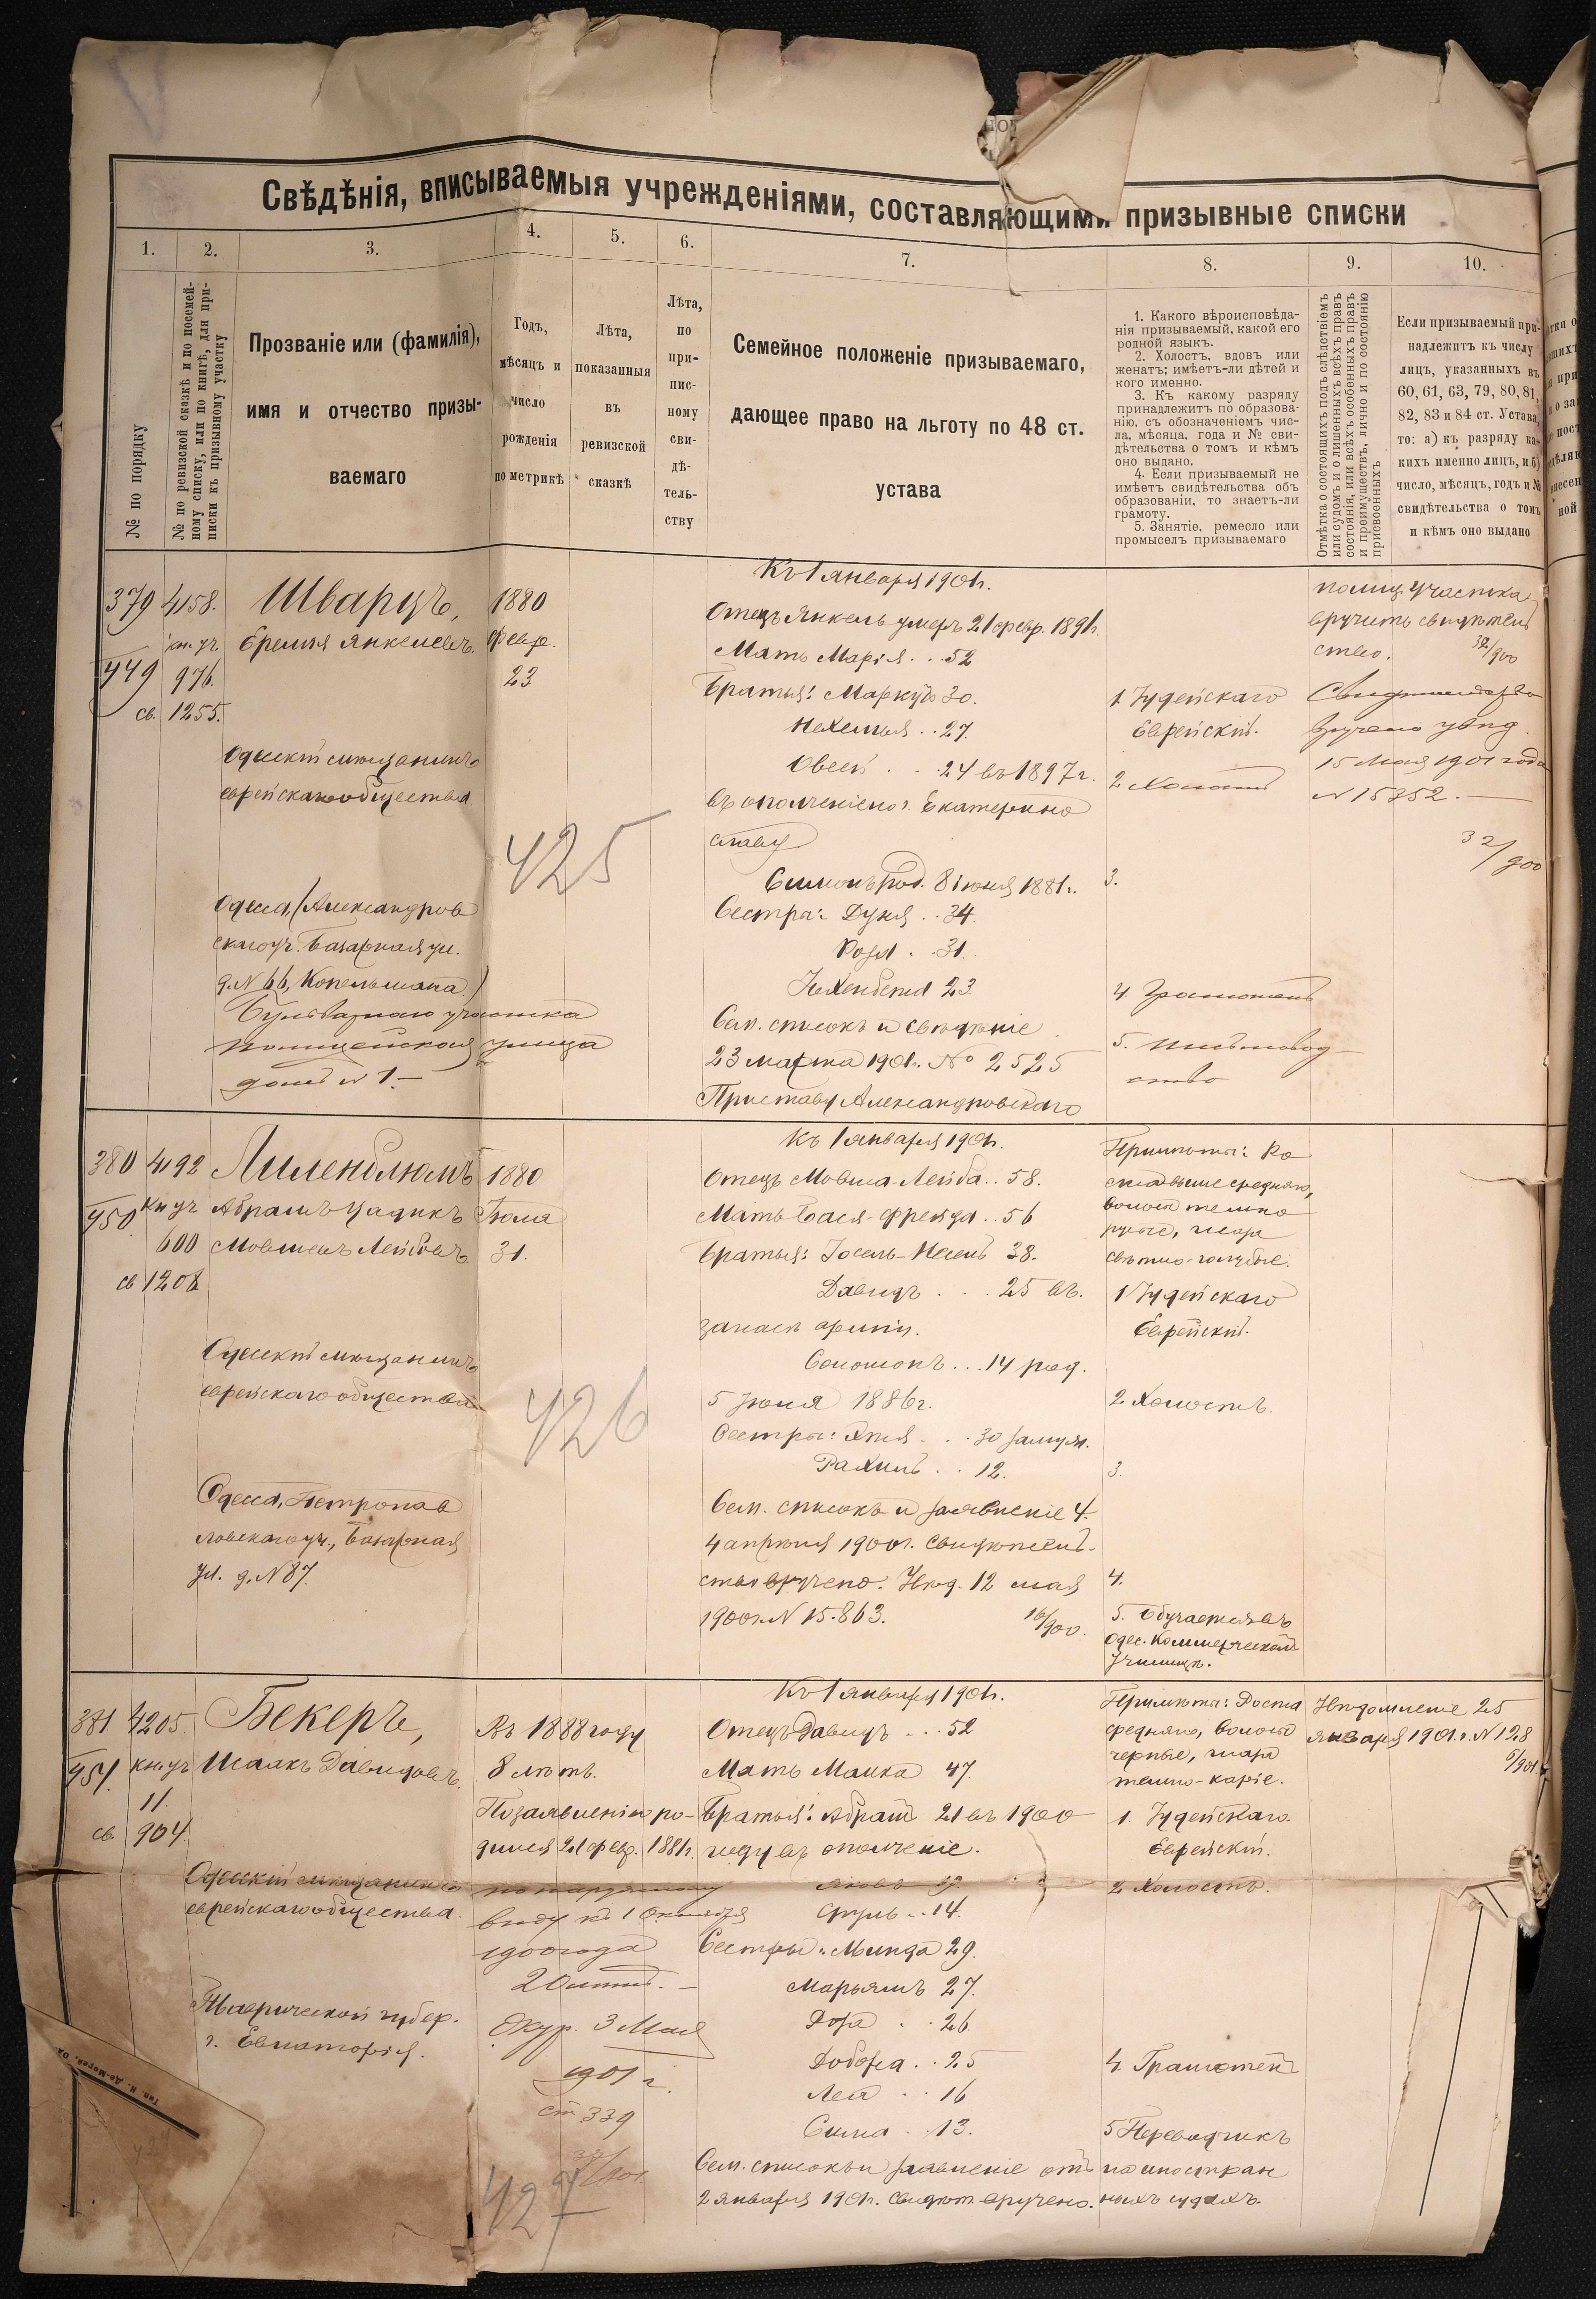 Свѣдѣнія, вписываемыя учрежденіями, составляющими призывные списки
1.
2.
3.
4.
5.
6.
7.
8.
9.
10.
№ по порядку
№ по ревизской сказкѣ и по посемей-
ному списку, или по книгѣ, для при-
писки къ призывному участку
Прозваніе или (фамилія),
имя и отчество призы-
ваемаго
Годъ,
мѣсяцъ и
число
рожденія
по метрикѣ
Лѣта,
показанныя
въ
ревизской
сказкѣ
Лѣта,
по
при-
пис-
ному
сви-
дѣ-
тель-
ству
Семейное положеніе призываемаго,
дающее право на льготу по 48 ст.
устава
1. Какого вѣроисповѣда-
нія призываемый, какой его
родной языкъ.
2. Холостъ, вдовъ или
женатъ; имѣетъ-ли дѣтей и
кого именно.
3. Къ какому разряду
принадлежитъ по образова-
нію, съ обозначеніемъ чис-
ла, мѣсяца, года и № сви-
дѣтельства о томъ и кѣмъ
оно выдано.
4. Если призываемый не
имѣетъ свидѣтельства объ
образованіи, то знаетъ-ли
грамоту.
5. Занятіе, ремесло или
промыселъ призываемаго
Отмѣтка о состоящихъ подъ слѣдствіемъ
или судомъ и о лишенныхъ всѣхъ правъ
состоянія, или всѣхъ особенныхъ правъ
и преимуществъ, лично и по состоянію
присвоенныхъ
Если призываемый при-
надлежитъ къ числу
лицъ, указанныхъ въ
60, 61, 63, 79, 80, 81,
82, 83 и 84 ст. Устава,
то: а) къ разряду ка-
кихъ именно лицъ, и б)
число, мѣсяцъ, годъ и №
свидѣтельства о томъ
и кѣмъ оно выдано
379
449
4158.
кн. уч.
976.
св. 1255.
Шварцъ,
Еремія Янкелевъ.
Одесскій мѣщанинъ
еврейскаго общества
Одесса, (Александров
скаго уч. Базарная ул.
д. N 66, Копельмана.)
Бульварнаго участка
полицейская улица
домъ N 1.—
1880
февр.
23
425
Къ 1 января 1901 г.
Отецъ Янкель умеръ 21 февр. 1891 г.
Мать Марія . . . 52
Братья: Маркусъ 30.
Нехемья . . 27.
Овсей . . 24 въ 1897 г.
въ ополченіе по г. Екатерино
славу
Симонъ род. 8 іюня 1881 г.
Сестры: Дуня . . 34.
Роза . . 31.
23.
Сем. списокъ и свѣдѣніе
23 марта 1901 г. № 2525
Приставу Александровскаго
1. Іудейскаго
Еврейскій.
2 Холостъ
3.
4. Грамотенъ
5. Письмовод
ство
полиц. участка
вручить свидѣтель
ство. 32/900
Свидѣтельство
вручено увѣд.
15 Мая 1901 года
N 15352.—
32/900
380
450
4192
кн уч
600
св 1208
Лиленблюмъ
Абрамъ-Цадикъ
Мовшевъ Лейбовъ.
Одесскій мѣщанинъ
еврейскаго общества
Одесса, Петропав
ловскаго уч., Базарная
ул. д. N 87.
1880
Іюля
31.
426
Къ 1 января 1901 г.
Отецъ Мовша-Лейба . . 58.
Мать Бася-Фрейда . . 56
Братья: Іосель- 38.
Давидъ . . . 25 въ.
запасѣ арміи.
Соломонъ . . . 14 род.
5 Іюня 1886 г.
Сестры: . . 30 замуж.
Рахиль . . 12.
Сем. списокъ и заявленіе
4 апрѣля 1900 г. Свидѣтель-
ство вручено. Увѣд. 12 мая
1900 г. N 15.863. 16/900.
Примѣты: Ро
ста выше средняго,
волоса темно
русые, глаза
свѣтло-голубые.
1 Іудейскаго
Еврейскій.
2 Холостъ.
3.
4.
5. Обучается въ
Одес. Коммерческомъ
Училищѣ.
381.
451.
4205.
кн. уч
11.
св. 904.
Бекеръ,
Исаакъ Давидовъ.
Одесскій мѣщанинъ
еврейскаго общества.
Таврической губер.
г. Евпаторія.
Въ 1888 году
8 лѣтъ.
По заявленію ро-
дился 21 февр. 1881 г.
по наружному
виду къ 1 Октября
1900 года
20 лѣтъ.—
Журн. 3 Мая
1901 г.
ст 339
427
Къ 1 января 1901 г.
Отецъ Давидъ . . . 52
Мать Малка 47.
Братья: Абрамъ 21 въ 1900
году въ ополченіе.
Яковъ 19
Сруль . . 14.
Сестры: Минда 29.
Марьямъ 27.
Дора . . 26.
Добора . . 25
Лея . . 16
Сима . . 13.
Сем. списокъ и заявленіе отъ
2 января 1901 г. Свидѣт. вручено.
Примѣты: Роста
средняго, волоса
черные, глаза
темно-каріе.
1. Іудейскаго.
Еврейскій.
2. Холостъ.
4. Грамотенъ
5 Переводчикъ
на иностран
ныхъ судахъ.
Увѣдомленіе 25
января 1901 г. N 128
6/901.
Тип. К. До-Морей, Од.